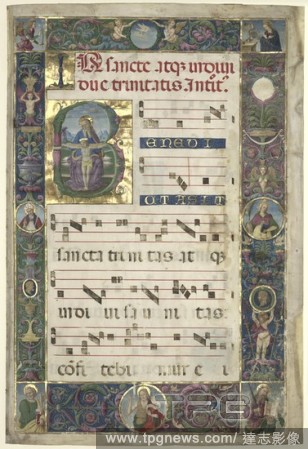 In sancte atq̄ indivi
due trinitatis Introit̄.
B
ENEDI
OTA SIT
sancta trinitas atq̄
indi vi sa u ni tas:
cōfi tebi mur e i
TPG
www.tpgnews.com/達志影像